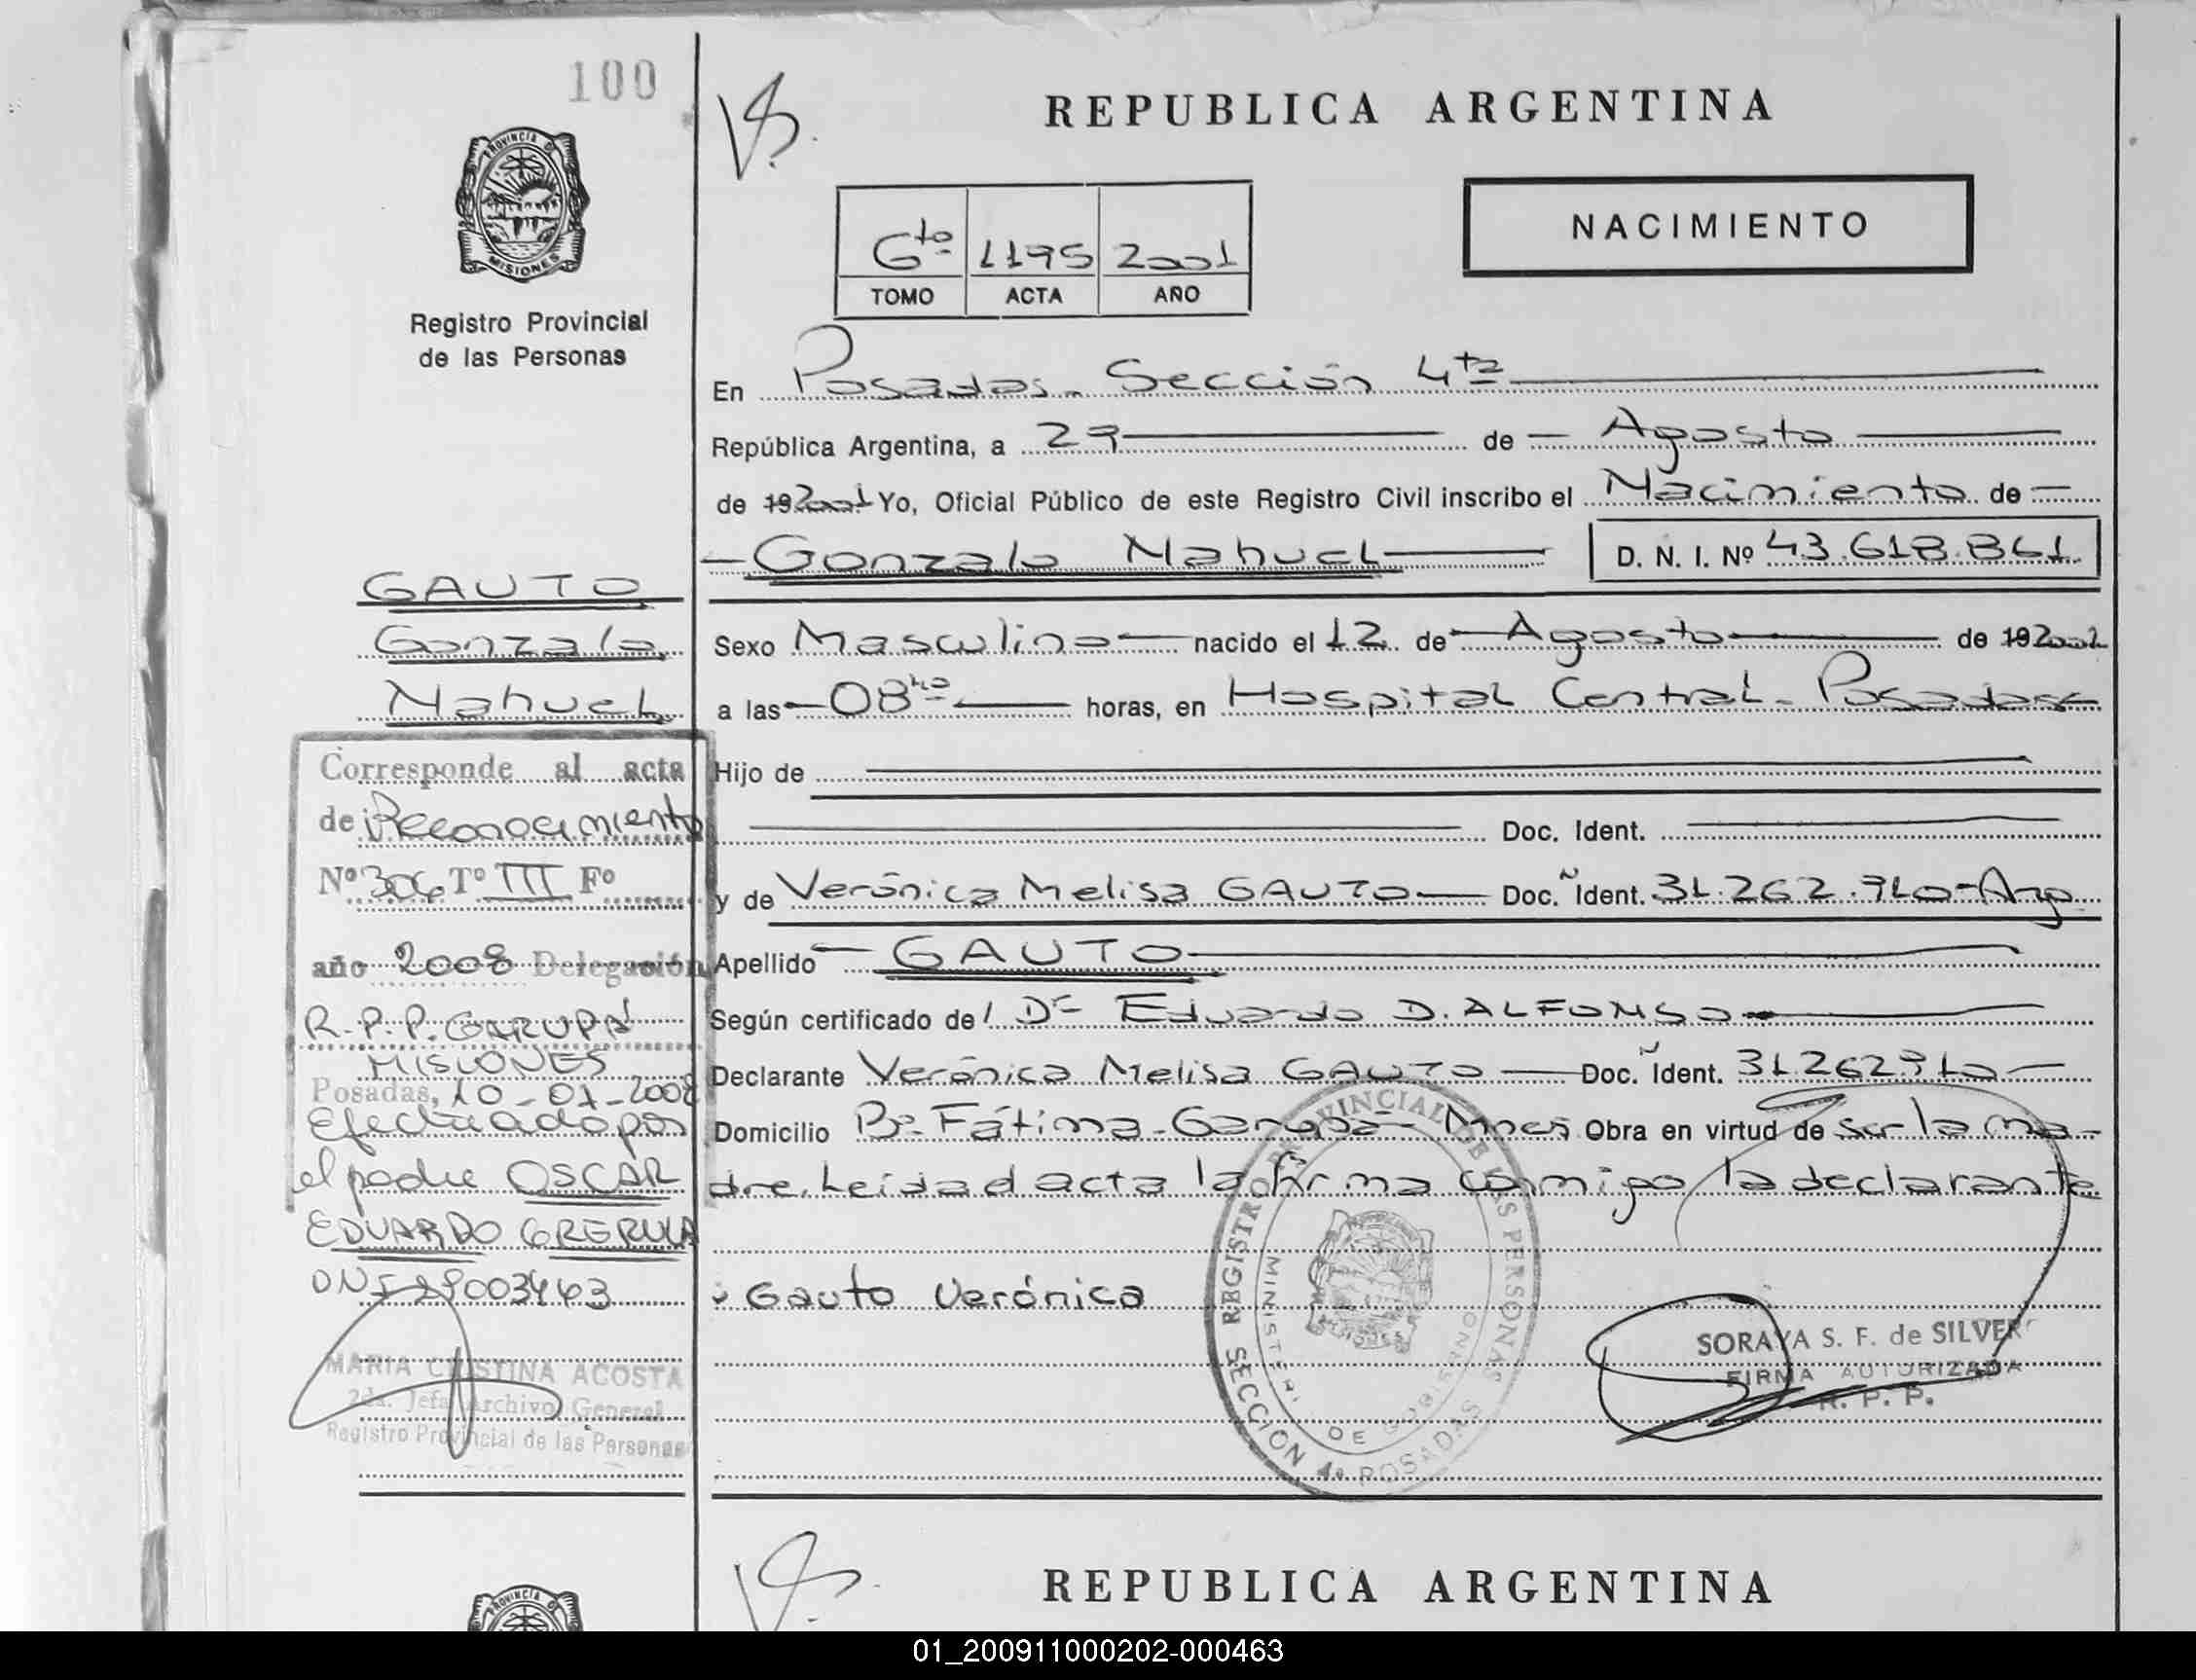 100
PROVINCIA DE
MISIONES
Registro Provincial
de las Personas
REPUBLICA ARGENTINA
NACIMIENTO
6to 1195 2001
TOMO ACTA AÑO
En Posadas - Sección 4ta
República Argentina, a 29 de Agosto
de 192001 Yo, Oficial Público de este Registro Civil inscribo el Nacimiento de
Gonzalo Nahuel D. N. I. Nº 43.618.861.
Sexo Masculino nacido el 12 de Agosto de 192001
a las 08hs horas, en Hospital Central - Posadas
Hijo de
Doc. Ident.
y de Verónica Melisa GAUTO Doc. Ident. 31.262.910-Arg
Apellido GAUTO
Según certificado de Dr Eduardo D. ALFONSO
Declarante Verónica Melisa GAUTO Doc. Ident. 31262910
Domicilio Bº Fátima - Garupá - Mnes Obra en virtud de ser la ma-
dre. Leída el acta la firma conmigo la declarante
Gauto Verónica
REGISTRO PROVINCIAL DE LAS PERSONAS
MINISTERIO DE GOBIERNO
SECCION 4ª POSADAS
SORAYA S. F. de SILVER
FIRMA AUTORIZADA
R. P. P.
GAUTO
Gonzalo
Nahuel
Corresponde al acta
de Reconocimiento
Nº 306 Tº III Fº
año 2008 Delegación
R.P.P. GARUPÁ
MISIONES
Posadas, 10-01-2008
Efectuado por
el padre OSCAR
EDUARDO
DNI 29003463
MARIA CRISTINA ACOSTA
2da. Jefa Archivo General
Registro Provincial de las Personas
REPUBLICA ARGENTINA
PROVINCIA
01_200911000202-000463